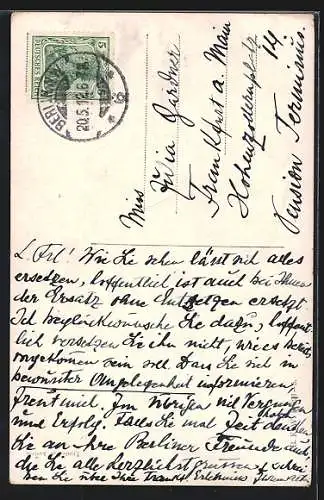 DEUTSCHES REICH
5
BERLIN
20.5.12.6
Miss Julia Gardner
Frankfurt a. Main
Hohenzollernplatz 14
Pension Terminus.
L. Frl! Wie Sie sehen lässt sich alles
ersetzen, hoffentlich ist auch bei Ihnen
der Ersatz ohne ersetzt
Ich beglückwünsche Sie dazu, hoffent-
lich versetzen Sie ihn nicht, wie es bereits
vorgekommen sein soll. Dass Sie sich in
bewusster Angelegenheit informieren,
freut mich. Im übrigen viel Vergnügen
und Erfolg. Falls Sie mal Zeit haben denken
Sie an Ihre Berliner Freunde auch,
die Sie alle herzlichst grüssen. Schrei-
ben Sie über Ihre Erlebnisse